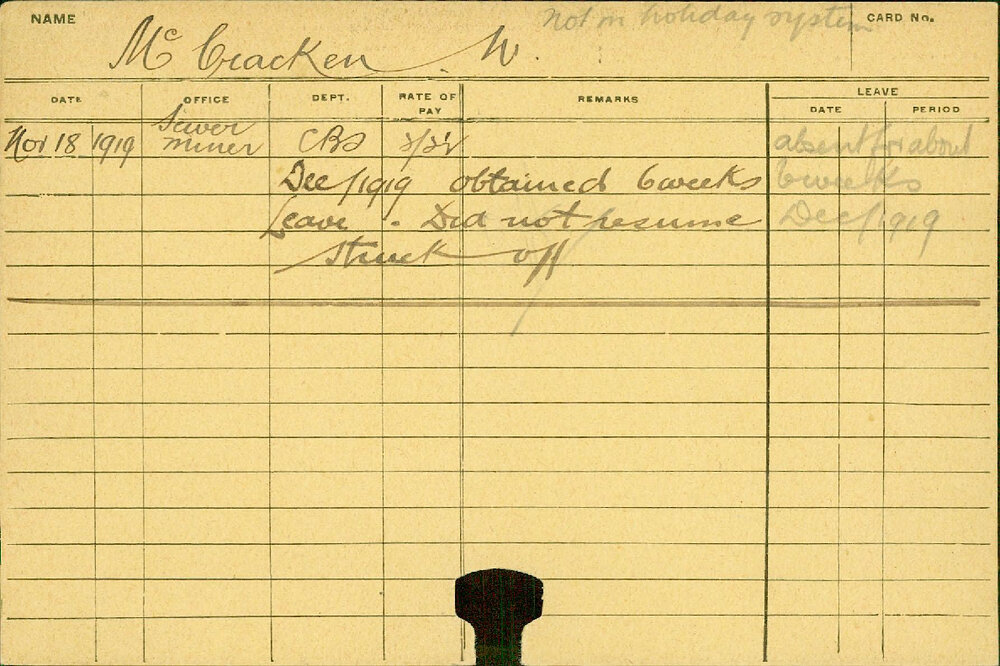 NAME Mc Cracken . W. Not in holiday system CARD No.
DATE OFFICE DEPT. RATE OF PAY REMARKS LEAVE
DATE PERIOD
Nov 18 1919 Sewer miner absent for about
Dec/1919 obtained 6 weeks 6 weeks
Leave . Did not resume Dec/1919
Struck off